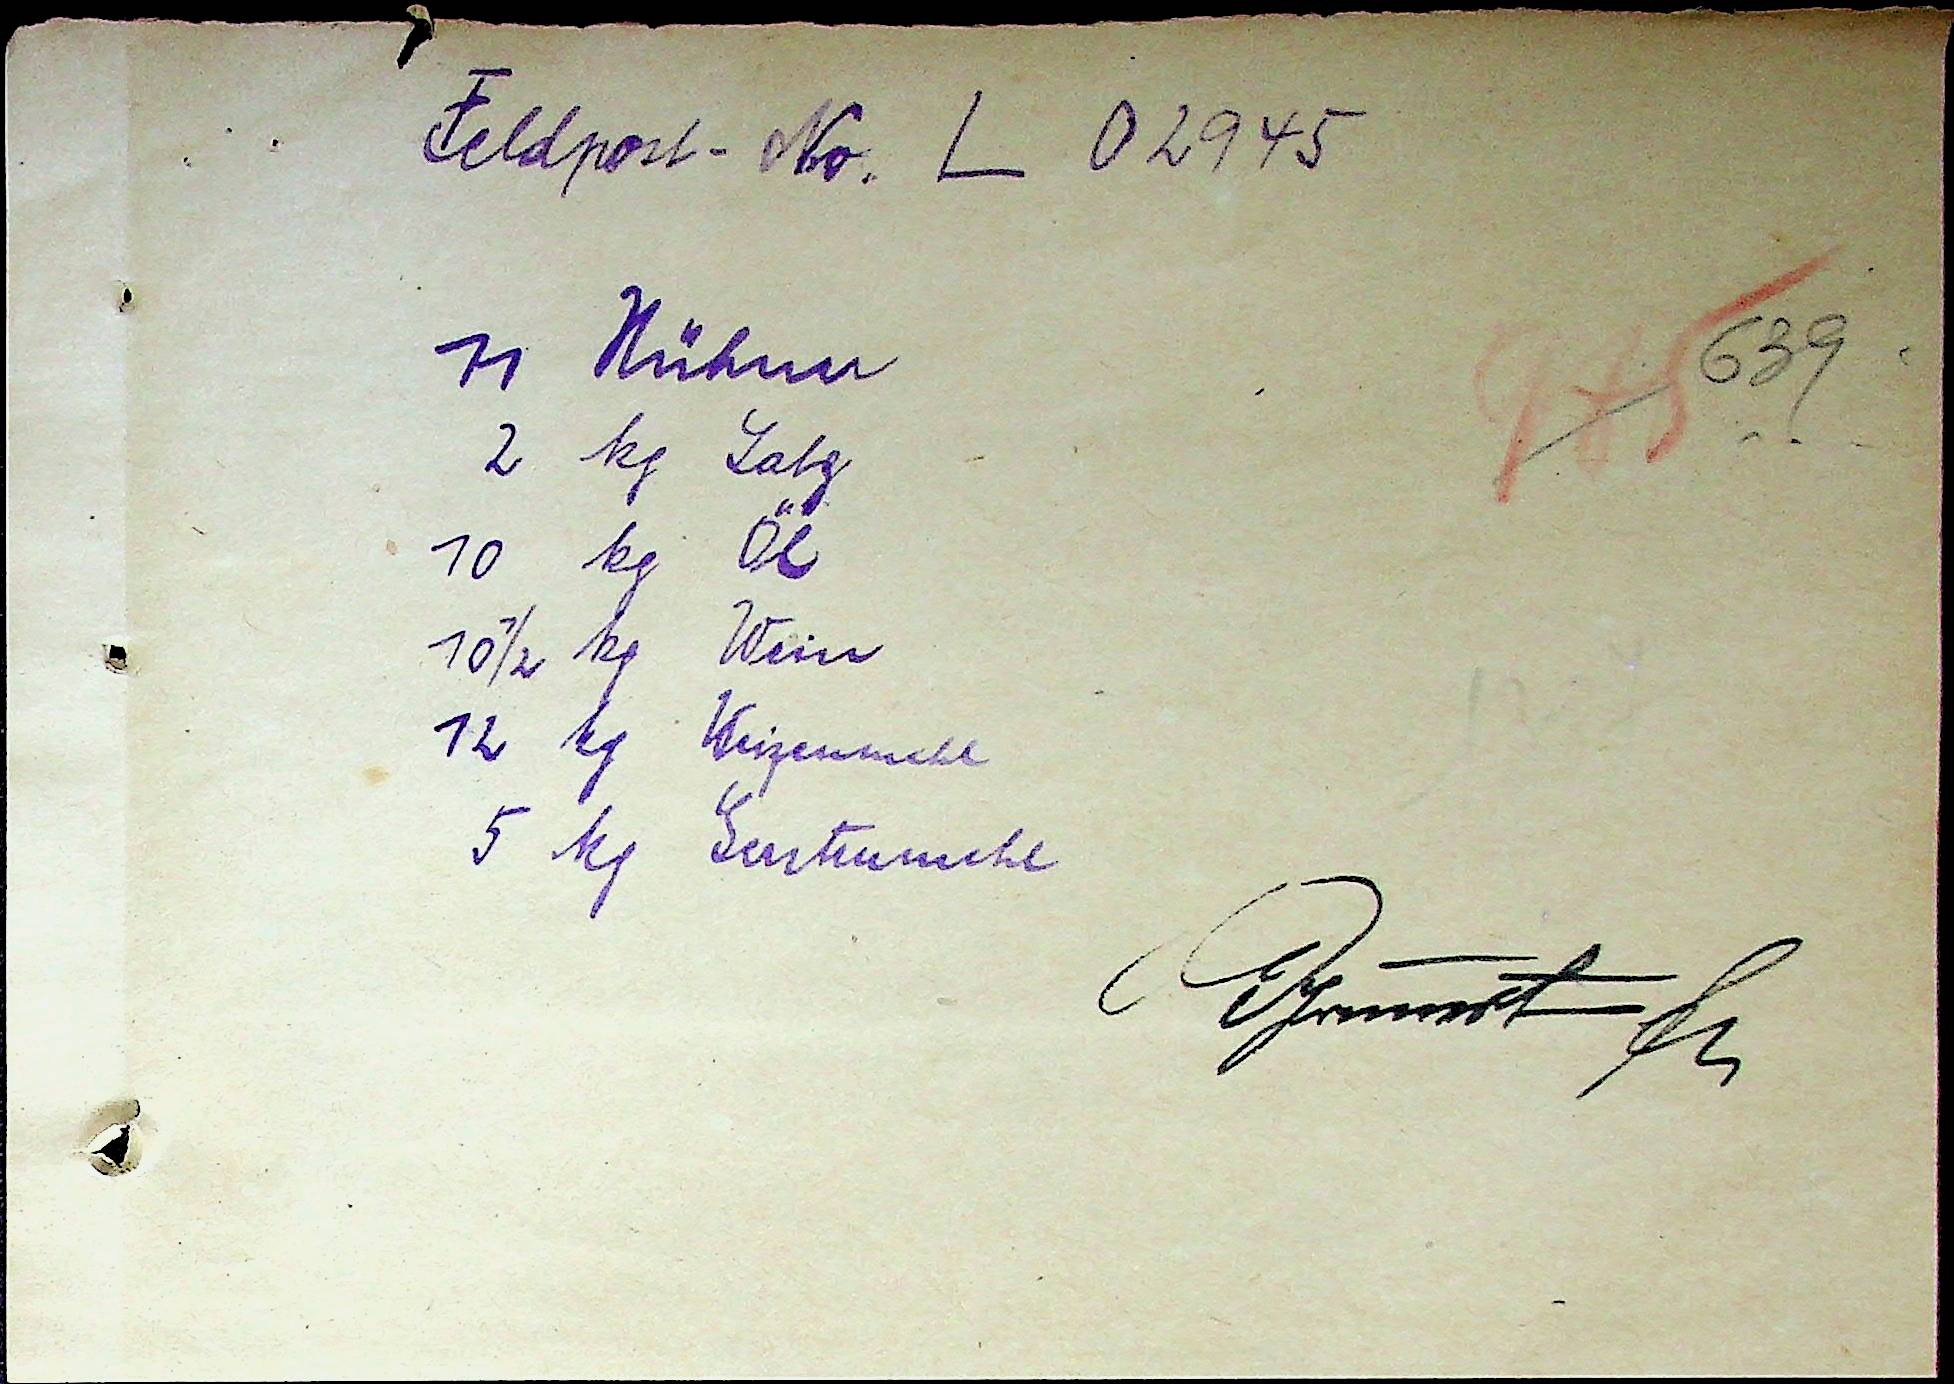 Feldpost-No. L 02945
639
11 Hühner
2 kg Salz
10 kg Öl
10 1/2 kg Wein
12 kg Weizenmehl
5 kg Gerstenmehl